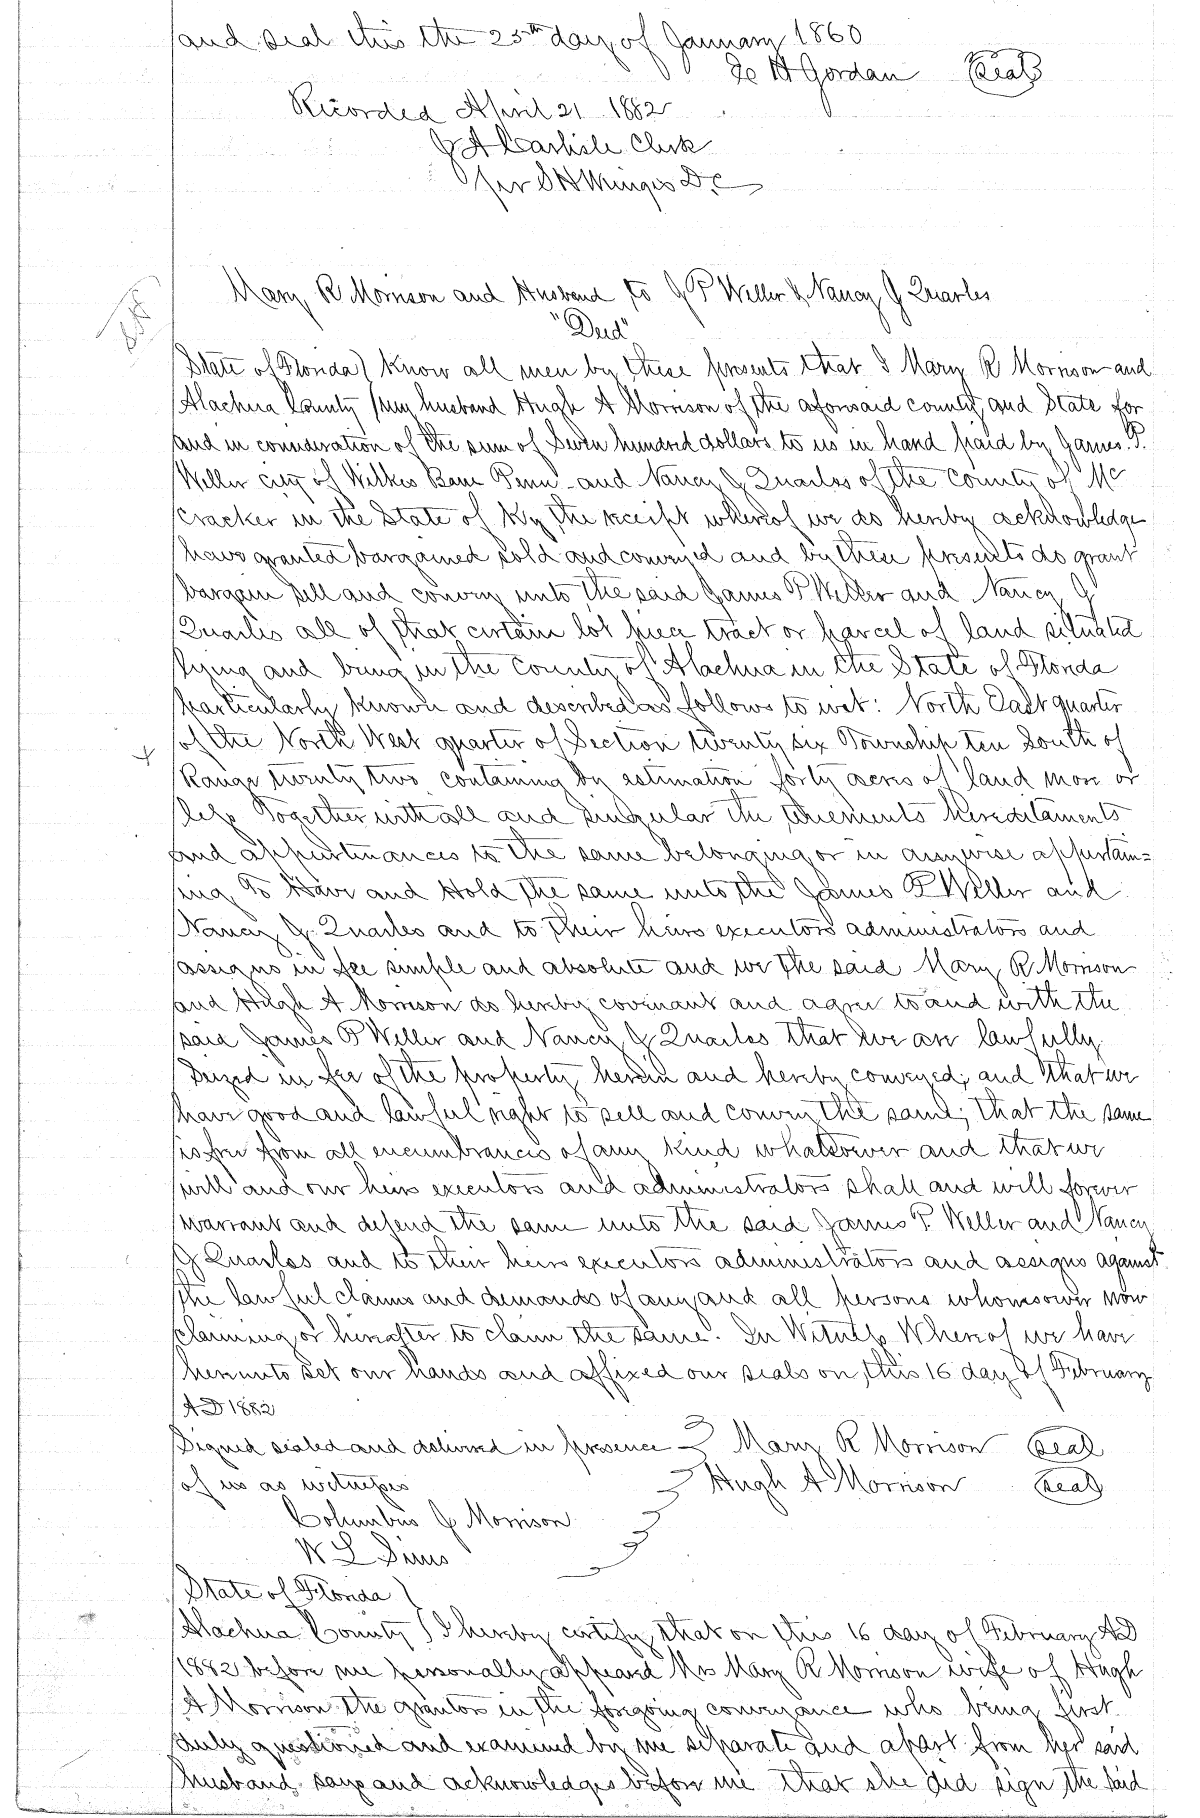 and seal this the 25th day of January 1860
H Gordan Seal
Recorded April 21 1882
J A Carlisle Clerk
per S H Wienges D.C
Mary R Morrison and Husband to J P Weller & Nancy J Quarles
"Deed"
State of Florida) Know all men by these presents that I Mary R Morrison and
Alachua County (my husband Hugh A Morrison of the aforesaid county and State for
and in consideration of the sum of Seven hundred dollars to us in hand paid by James P.
Weller city of Wilkes Bare Penn and Nancy J Quarles of the County of Mc
Cracker in the State of Ky the receipt whereof we do hereby acknowledge
have granted bargained sold and conveyed and by these presents do grant
bargain sell and convey unto the said James P Weller and Nancy J
Quarles all of that certain lot piece tract or parcel of land situated
lying and being in the County of Alachua in the State of Florida
particularly known and described as follows to wit: North East quarter
of the North West quarter of Section twenty six Township ten South of
Range twenty two containing by estimation forty acres of land more or
less Together with all and singular the tenements hereditaments
and appurtenances to the same belonging or in anywise appertain=
ing To Have and Hold the same unto the James P Weller and
Nancy J. Quarles and to their heirs executors administrators and
assigns in fee simple and absolute and we the said Mary R Morrison
and Hugh A Morrison do hereby covenant and agree to and with the
said James P Weller and Nancy J Quarles that we are lawfully
Seized in fee of the property herein and hereby conveyed; and that we
have good and lawful right to sell and convey the same; that the same
is free from all encumbrances of any kind whatsoever and that we
will and our heirs executors and administrators shall and will forever
warrant and defend the same unto the said James P. Weller and Nancy
J Quarles and to their heirs executors administrators and assigns against
the lawful claims and demands of any and all persons whomsoever now
claiming or hereafter to claim the same. In Witness Whereof we have
hereunto set our hands and affixed our seals on this 16 day of February
AD 1882
Signed sealed and delivered in presence Mary R Morrison Seal
of us as witnesses Hugh A Morrison Seal
Columbus J Morrison
W L Sims
State of Florida)
Alachua County (I hereby certify that on this 16 day of February AD
1882 before me personally appeared Mrs Mary R Morrison wife of Hugh
A Morrison the grantors in the foregoing conveyance who being first
duly questioned and examined by me separate and apart from her said
husband says and acknowledges before me that she did sign the said